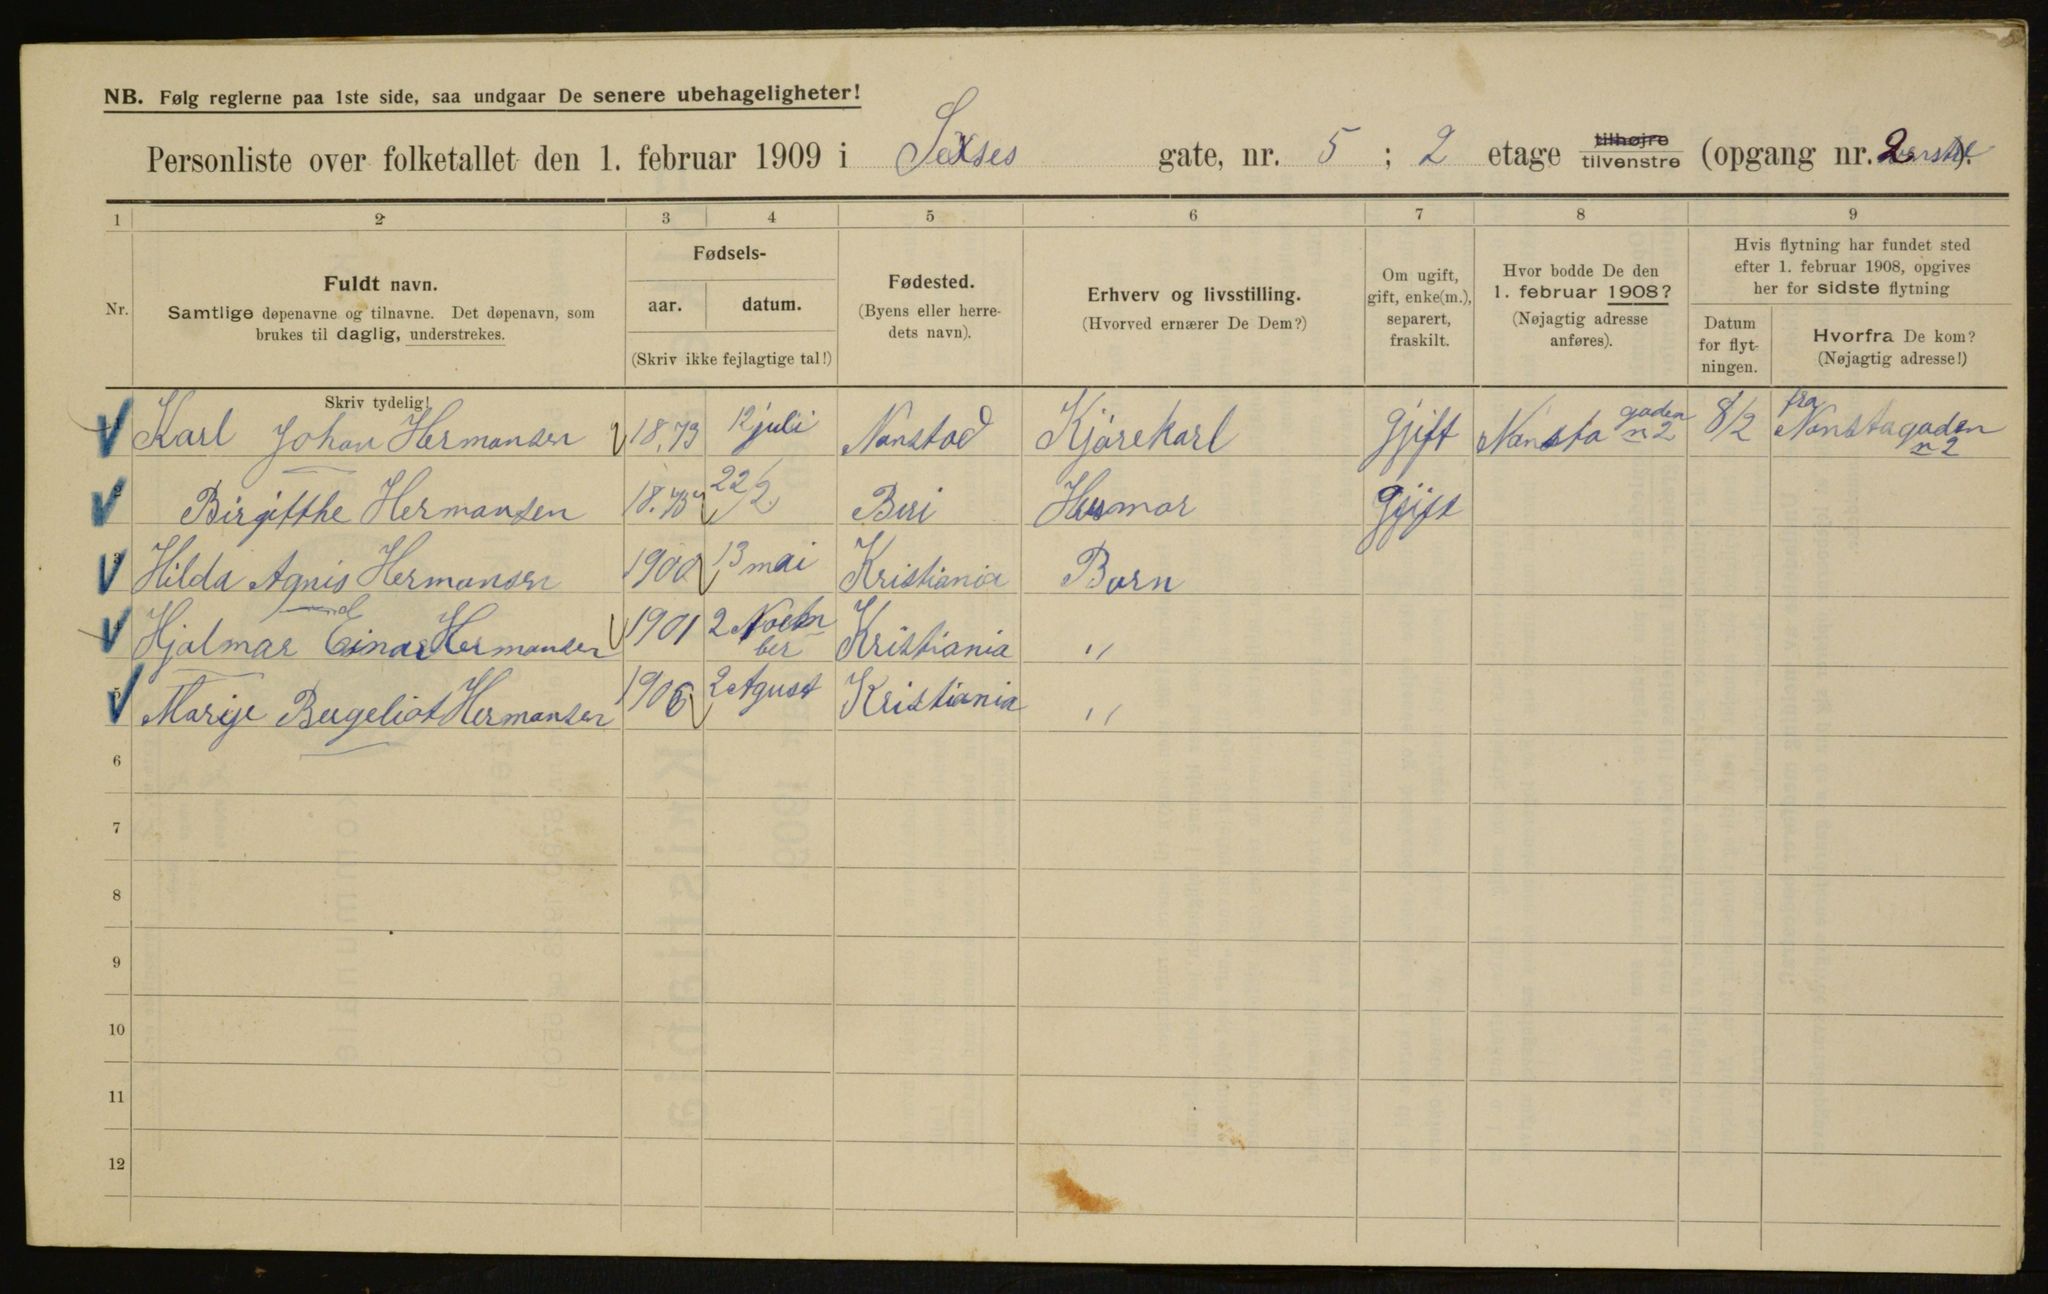 NB. Følg reglerne paa 1ste side, saa undgaar De senere ubehageligheter!
Personliste over folketallet den 1. februar 1909 i Sexses gate, nr. 5 ; 2 etage tilhøjre tilvenstre (opgang nr. 2 ).
1 2 3 4 5 6 7 8 9
Nr.
Fuldt navn.
Samtlige døpenavne og tilnavne. Det døpenavn, som
brukes til daglig, understrekes.
Skriv tydelig!
Fødsels-
aar. datum.
(Skriv ikke fejlagtige tal!)
Fødested.
(Byens eller herre-
dets navn).
Erhverv og livsstilling.
(Hvorved ernærer De Dem?)
Om ugift,
gift, enke(m.),
separert,
fraskilt.
Hvor bodde De den
1. februar 1908?
(Nøjagtig adresse
anføres).
Hvis flytning har fundet sted
efter 1. februar 1908, opgives
her for sidste flytning
Datum
for flyt-
ningen.
Hvorfra De kom?
(Nøjagtig adresse!)
Karl Johan Hermansen 18.73 12 juli Nanstad Kjørekarl Gjift Nansta gaden n 2 8/2 fra Nanstagaden n 2
2 Birgitthe Hermansen 18.73 22/2 Biri Husmor Gjift
3 Hilda Agnis Hermansen 1900 13 mai Kristiania Barn
Hjalmar Einar Hermansen 1901 2 Noem ber Kristiania "
5 Marije Bergeliot Hermansen 1906 2 Agust Kristiania "
6
7
8
9
10
11
12